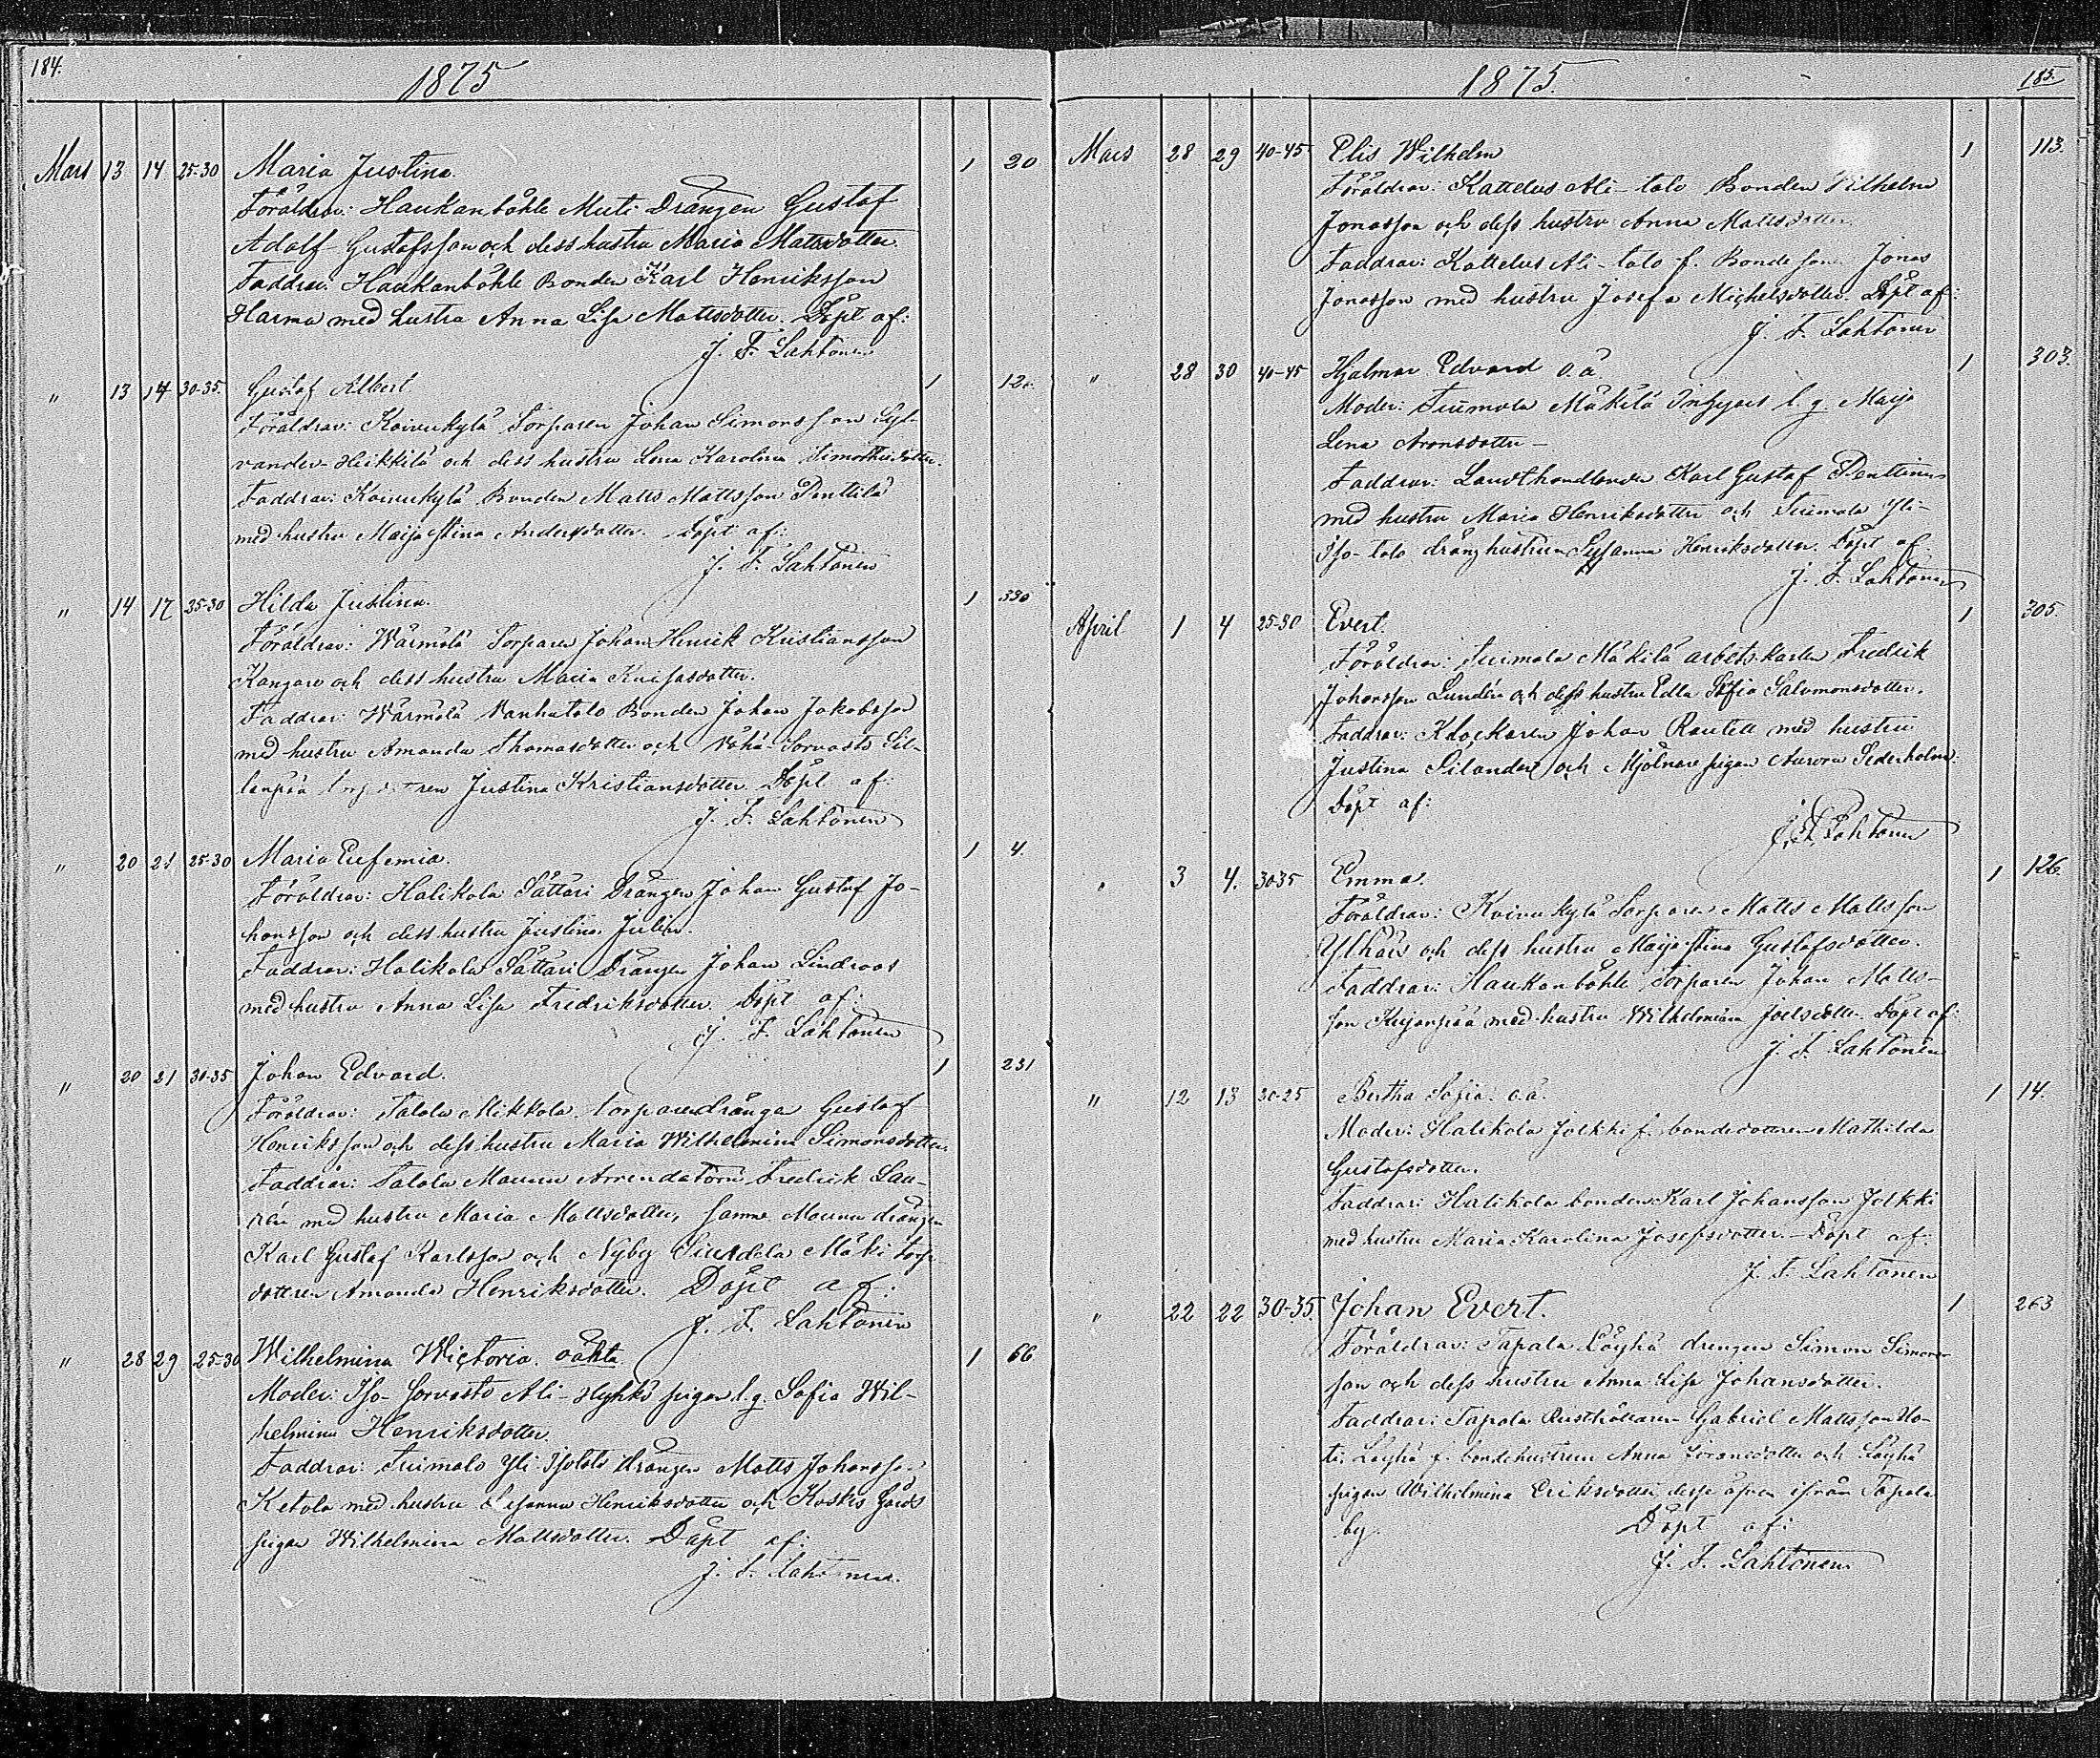 184.
1875
Mars 13 14 25-30 Maria Justina. 1 20
Föräldrar: Haukanböhle Muti Drängen Gustaf
Adolf Gustafsson och dess hustru Maria Mattsdotter.
Faddrar: Haukanböhle Bonden Karl Henriksson
Harma med hustru Anna Lisa Mattsdotter. Döpt af:
J. F. Lahtonen
" 13 14 30-35. Gustaf Albert 1
Föräldrar: Koivukylä Torparen Johan Simonsson Syl-
vander-Heikkilä och dess hustru Lena Karolina
Faddrar: Koivukylä Bonden Matts Mattsson Penttilä
med hustru Maija Stina Andersdotter. Döpt af:
J. F. Lahtonen
" 14 17 25-30 Hilda Justina. 1 330
Föräldrar: Wärmälä Torparen Johan Henrik Kristiansson
Kangare och dess hustru Maria
Faddrar: Wärmälä Vanhatalo Bonden Johan Jakobsson
med hustru Amanda Thomasdotter och Vähä-Sorvasto Sil-
lanpää Justina Kristiansdotter Döpt af:
J. F. Lahtonen
" 20 21 25-30 Maria Eufemia. 1 4.
Föräldrar: Halikola Sättäri Drängen Johan Gustaf Jo-
hansson och dess hustru Justina Julin.
Faddrar: Halikola Sättäri Drängen Johan Lindroos
med hustru Anna Lisa Fredriksdotter. Döpt af:
J. F. Lahtonen
" 20 21 30-35 Johan Edvard. 1 231
Föräldrar: Talola Mikkola torparedränge Gustaf
Henriksson och dess hustru Maria Wilhelmina Simonsdotter.
Faddrar: Talola Maunu Arrendatorn Fredrik Lau-
rén med hustru Maria Mattsdotter, samme Maunu drängen
Karl Gustaf Karlsson och Nyby Mäki torp-
dottren Amanda Henriksdotter. Döpt af:
J. F. Lahtonen
" 28 29 25-30 Wilhelmina Wictoria. oäkta 1 66
Moder: Iso-Sorvasto Ali-Hyhkö pigan l.g. Sofia Wil-
helmina Henriksdotter.
Faddrar: Tuimala Yli-Isotalo drängen Matts Johansson
Ketola med hustru Susanna Henriksdotter och Koskis Gårds
pigan Wilhelmina Mattsdotter. Döpt af:
J. F. Lahtonen.
1875.
185.
Mars 28 29 40-45 Elis Wilhelm 1 113.
Föräldrar: Kattelus Ali-talo Bonden Wilhelm
Jonasson och dess hustru Anna Mattsdotter.
Faddrar: Kattelus Ali-talo f. Bonde Jonas
Jonasson med hustru Josefa Michelsdotter. Döpt af:
J. F. Lahtonen
" 28 30 40-45 Hjalmar Edvard o.ä. 1 303.
Moder: Tuimala Mäkilä Inhyses l.g. Maija
Lena Aronsdotter-
Faddrar: Landthandlanden Karl Gustaf Penttinen
med hustru Maria Henriksdotter och Tuimala Yli-
Iso-talo dränghustrun Susanna Henriksdotter. Döpt af.
J. F. Lahtonen
April 1 4 25-30 Evert. 1 305.
Föräldrar: Tuimala Mäkilä arbetskarlen Fredrik
Johansson Lundén och dess hustru Edla Sofia Salomonsdotter.
Faddrar: Klockaren Johan Rautell med hustru
Justina Silander och Mjölnare pigan Aurora Sederholm.
Döpt af:
J. F. Lahtonen
" 3 4. 30-35 Emma. 1 126.
Föräldrar: Koivukylä Torparen Matts Mattsson
Ylhäis och dess hustru Maija Stina Gustafsdotter.
Faddrar: Haukanböhle Torparen Johan Matts-
son med hustru Wilhelmina Joelsdotter. Döpt af:
J. F. Lahtonen
" 12 13 20-25 Bertha Sofia. o.ä. 1 14.
Moder: Halikola Jolkki f. bondedottren Mathilda
Gustafsdotter.
Faddrar: Halikola bonden Karl Johansson Jolkki
med hustru Maria Karolina Josefsdotter. - Döpt af:
J. F. Lahtonen
" 22 22 30-35. Johan Evert. 1 263
Föräldrar: Tapala Löyhä drengen Simon Simons-
son och dess hustru Anna Lisa Johansdotter.
Faddrar: Tapala Rusthållaren Gabriel Mattsson Ho-
ti, Löyhä f. bondehustrun Anna och Löyhä
pigan Wilhelmina Eriksdotter desse äfven ifrån Tapala
by. Döpt af:
J. F. Lahtonen